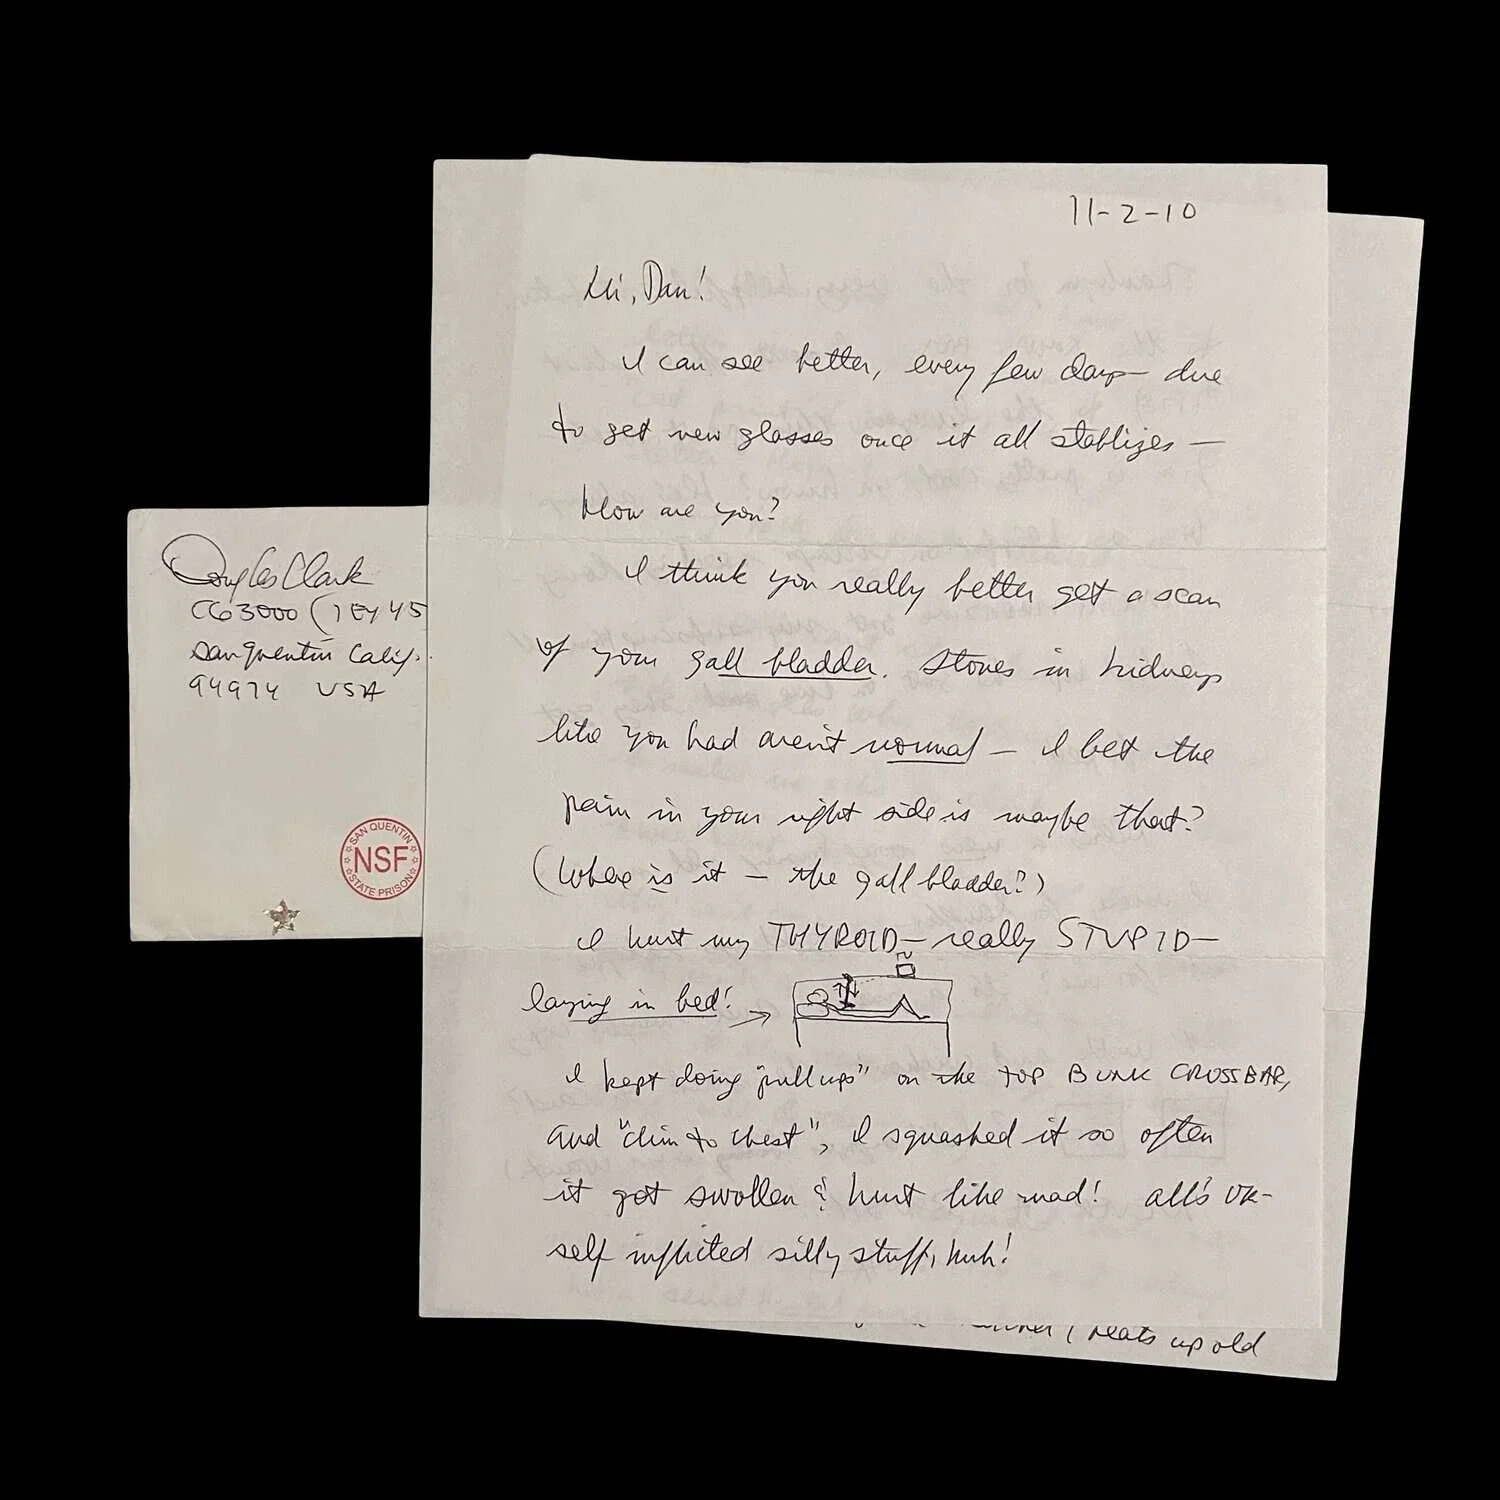 Douglas Clark
C63000 (1EY45
San Quentin Calif.
94974 USA
SAN QUENTIN
NSF
STATE PRISON
11-2-10
Hi, Dan!
I can see better, every few days— due
to get new glasses once it all stablizes —
How are you?
I think you really better get a scan
of your gall bladder. Stones in kidneys
like you had aren't normal — I bet the
pain in your right side is maybe that?
(Where is it — the gall bladder?)
I hurt my THYROID— really STUPID—
laying in bed!
I kept doing "pullups" on the TOP BUNK CROSSBAR,
and "chin to chest", I squashed it so often
it got swollen & hurt like mad! all's OK-
self inflicted silly stuff, huh!
up old